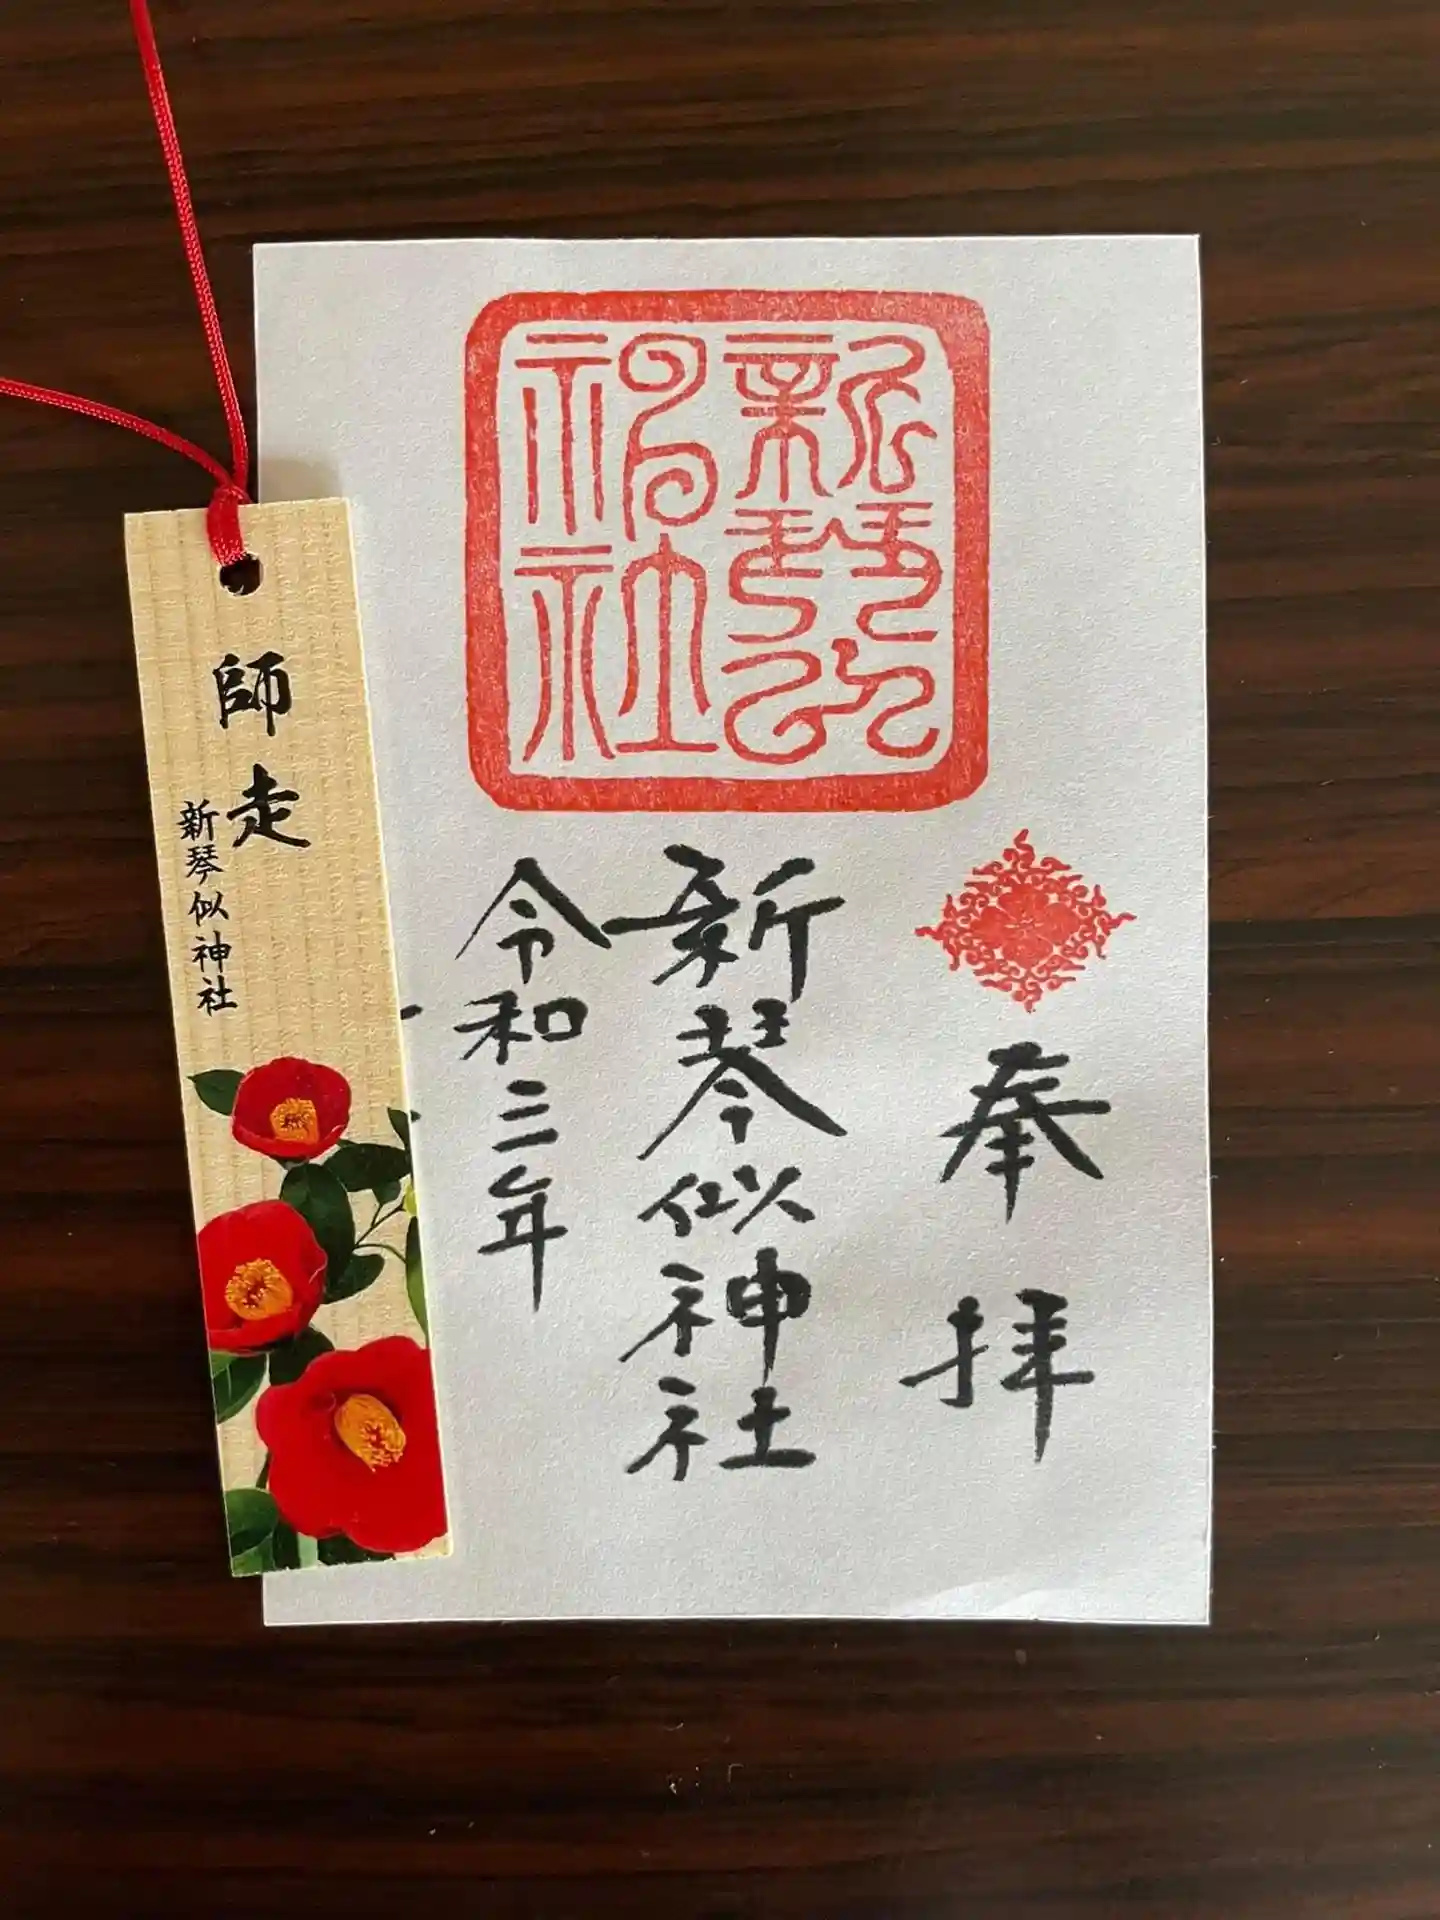 師走
新琴似神社
新琴似
神社
奉拝
新琴似神社
令和三年